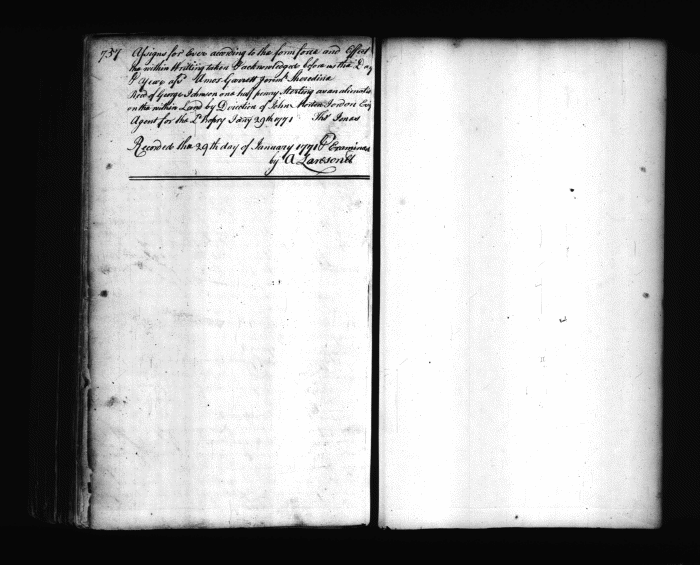 737
Assigns for Ever according to the form force and Effect
the within Writing taken & acknowledged before us the Day
& Year aff Amos Garrett Jerim Sheredine
Reced of George Johnson one half penny Sterling as an alienation
on the within Land by Direction of John Morton Jordon Esq
Agent for the Ld Propry Jany 29th 1771 Ths Jones
Recorded the 29th day of January 1771 & Examined
by A Lawson Clk